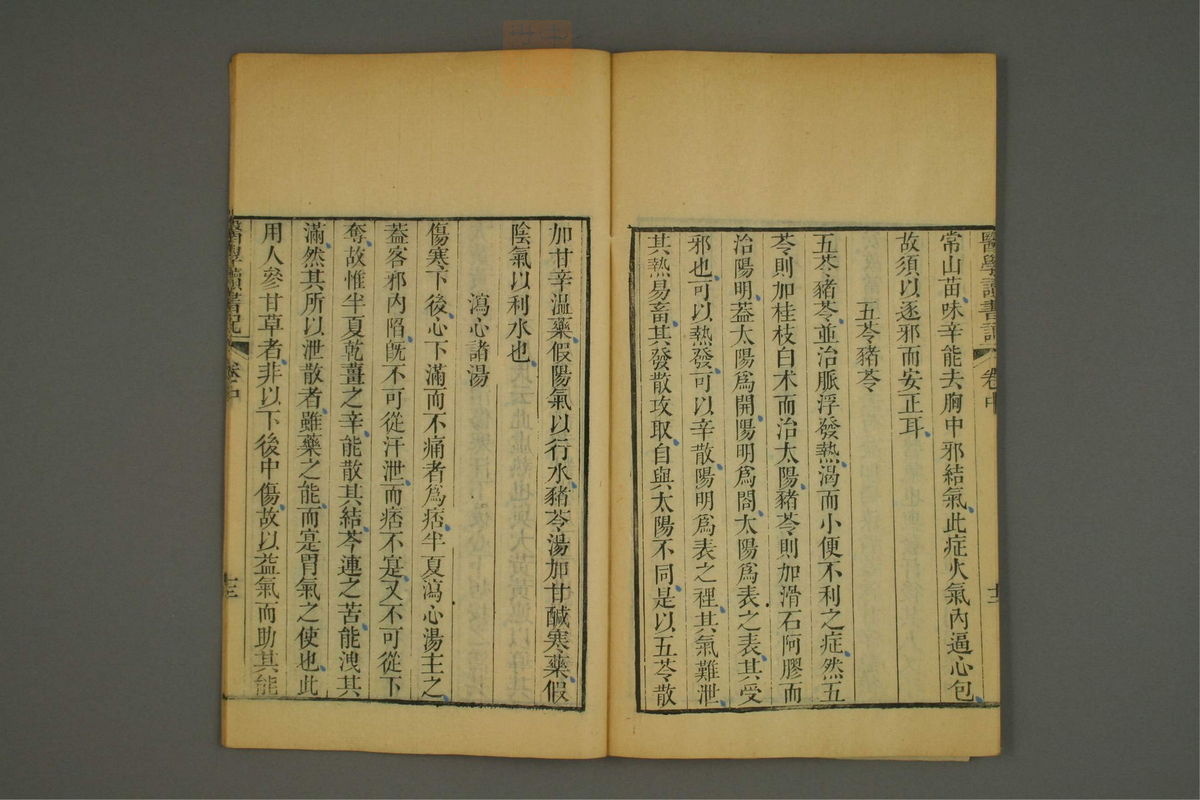 醫學讀書記 卷中 十二
常山苗味辛能去胸中邪結氣此症火氣內逼心包
故須以逐邪而安正耳
五苓豬苓
五苓豬苓並治脈浮發熱渴而小便不利之症然五
苓則加桂枝白术而治太陽豬苓則加滑石阿膠而
治陽明葢太陽爲開陽明爲閤太陽爲表之表其受
邪也可以熱發可以辛散陽明爲表之裡其氣難泄
其熱易畜其發散攻取自與太陽不同是以五苓散
加甘辛溫藥假陽氣以行水豬苓湯加甘鹹寒藥假
陰氣以利水也
瀉心諸湯
傷寒下後心下滿而不痛者爲痞半夏瀉心湯主之
葢客邪內陷旣不可從汗泄而痞不寔又不可從下
奪故惟半夏乾薑之辛能散其結芩連之苦能洩其
滿然其所以泄散者雖藥之能而寔胃氣之使也此
用人參甘草者非以下後中傷故以益氣而助其能
醫學讀書記 卷中 十三